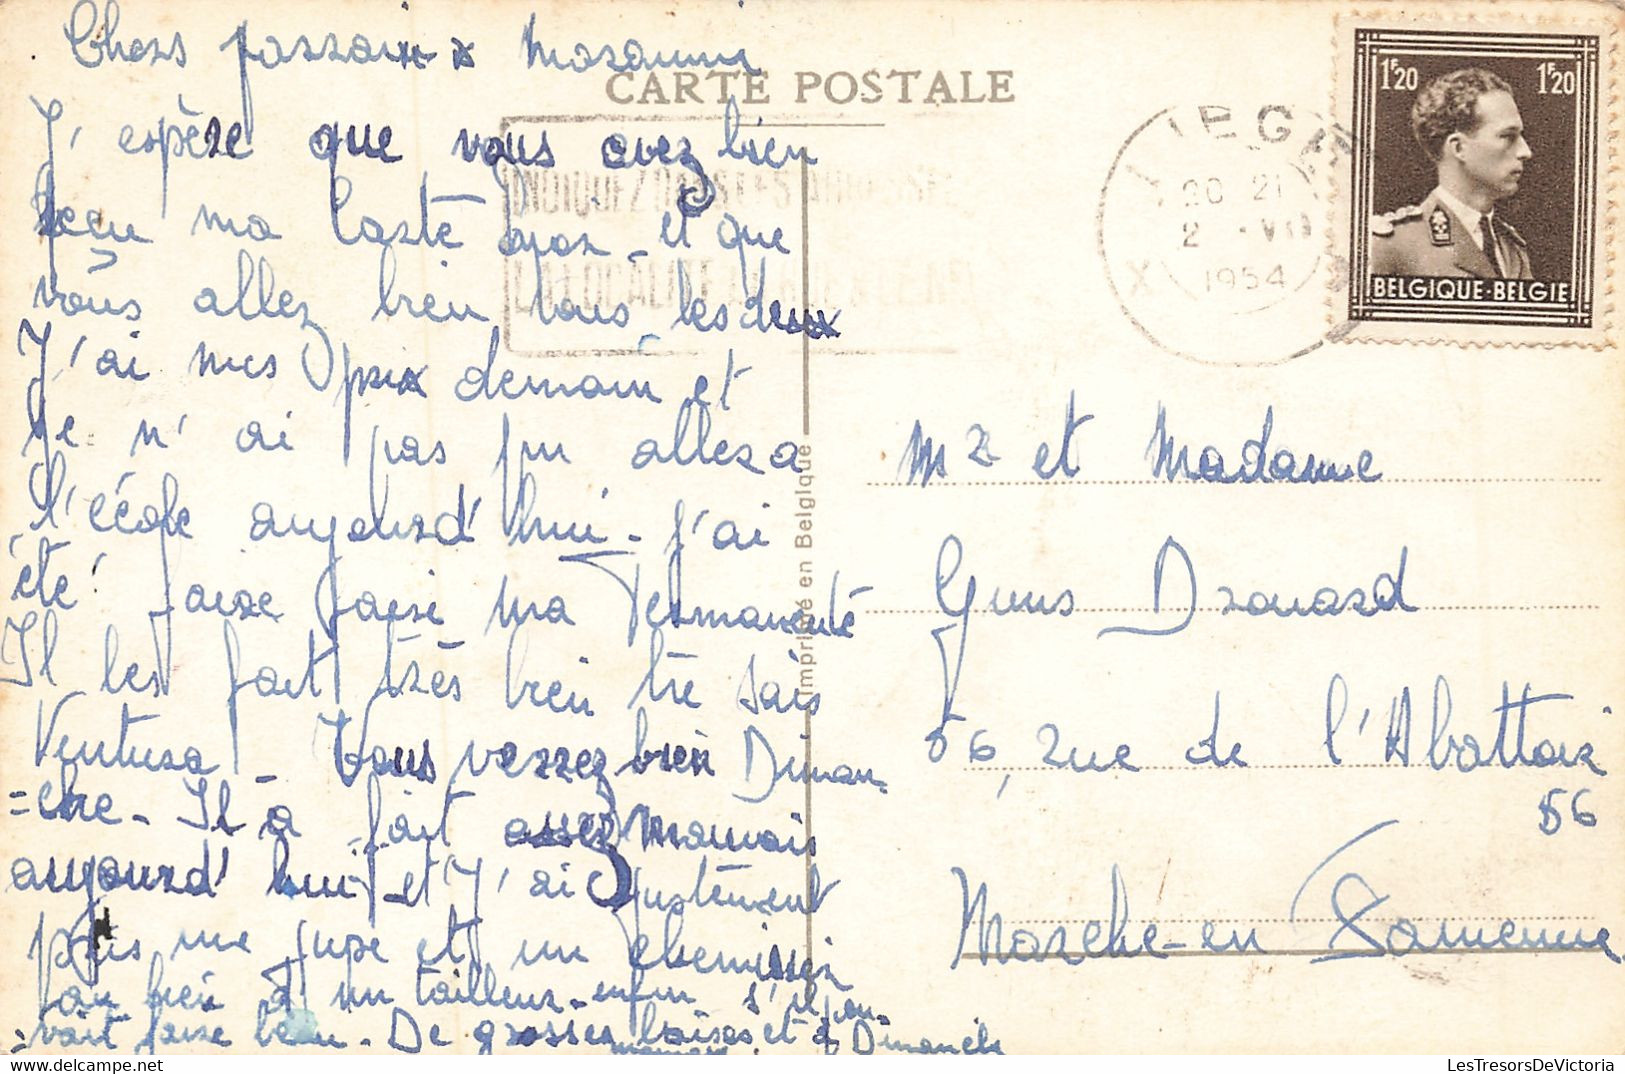 Chers parrain x
CARTE POSTALE
J'espère que vous avez bien
reçu ma carte et que
vous allez bien tous les deux
J'ai mes prix demain et
je n'ai pas pu allez a
l'école aujourd'hui - j'ai
été faire faire ma Permanente
Il les fait très bien
Vous verrez bien Diman
=che - Il a fait assez mauvais
aujourd'hui et J'ai justement
mis une jupe et un chemisier
ou bien un tailleur - enfin s'il pou-
=vait faire beau - De grosses baises et à Dimanche
INDIQUEZ DANS LES ADRESSES
LA LOCALITE LA RUE &
LIEGE
20 21
2 - VII
1954
X
1F20 1F20
BELGIQUE-BELGIE
Imprimé en Belgique
Mr et Madame
Drouard
56, rue de l'Abattoir
56
Marche-en Famenne
LesTresorsDeVictoria